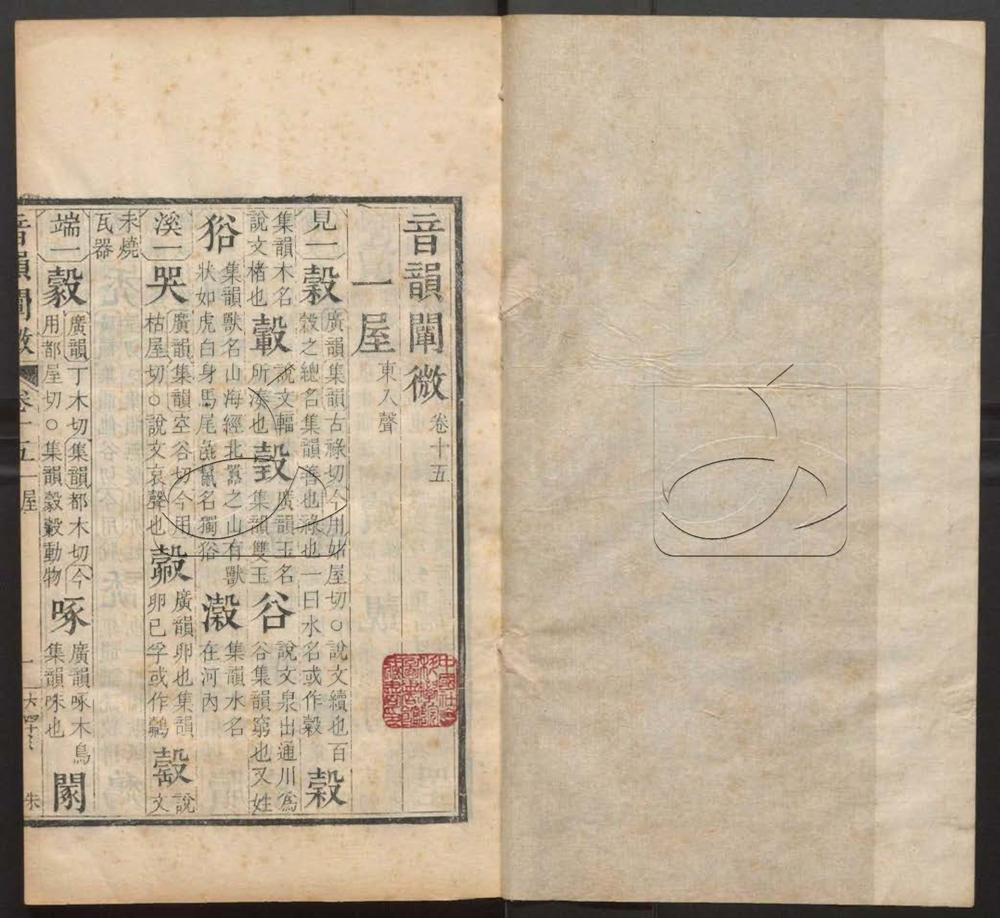 音韻闡微 卷十五
一屋 東入聲
見一 穀 廣韻集韻古祿切今用姑屋切○說文續也百
穀之總名集韻善也祿也一曰水名或作㝅 榖
集韻木名
說文楮也 轂 說文輻
所湊也 瑴 廣韻玉名
集韻雙玉 谷 說文泉出通川爲
谷集韻窮也又姓
㺉 集韻獸名山海經北嚻之山有獸
狀如虎白身馬尾彘鬣名獨㺉 瀔 集韻水名
在河內
溪一 哭 廣韻集韻空谷切今用
枯屋切○說文哀聲也 㲉 廣韻卵也集韻
卵已孚或作鷇 㱿 說
文
未燒
瓦器
端一 㝅 廣韻丁木切集韻都木切今
用都屋切○集韻㝅㝅動物 啄 廣韻啄木鳥
集韻咮也
音韻闡微 卷十五 一屋 一